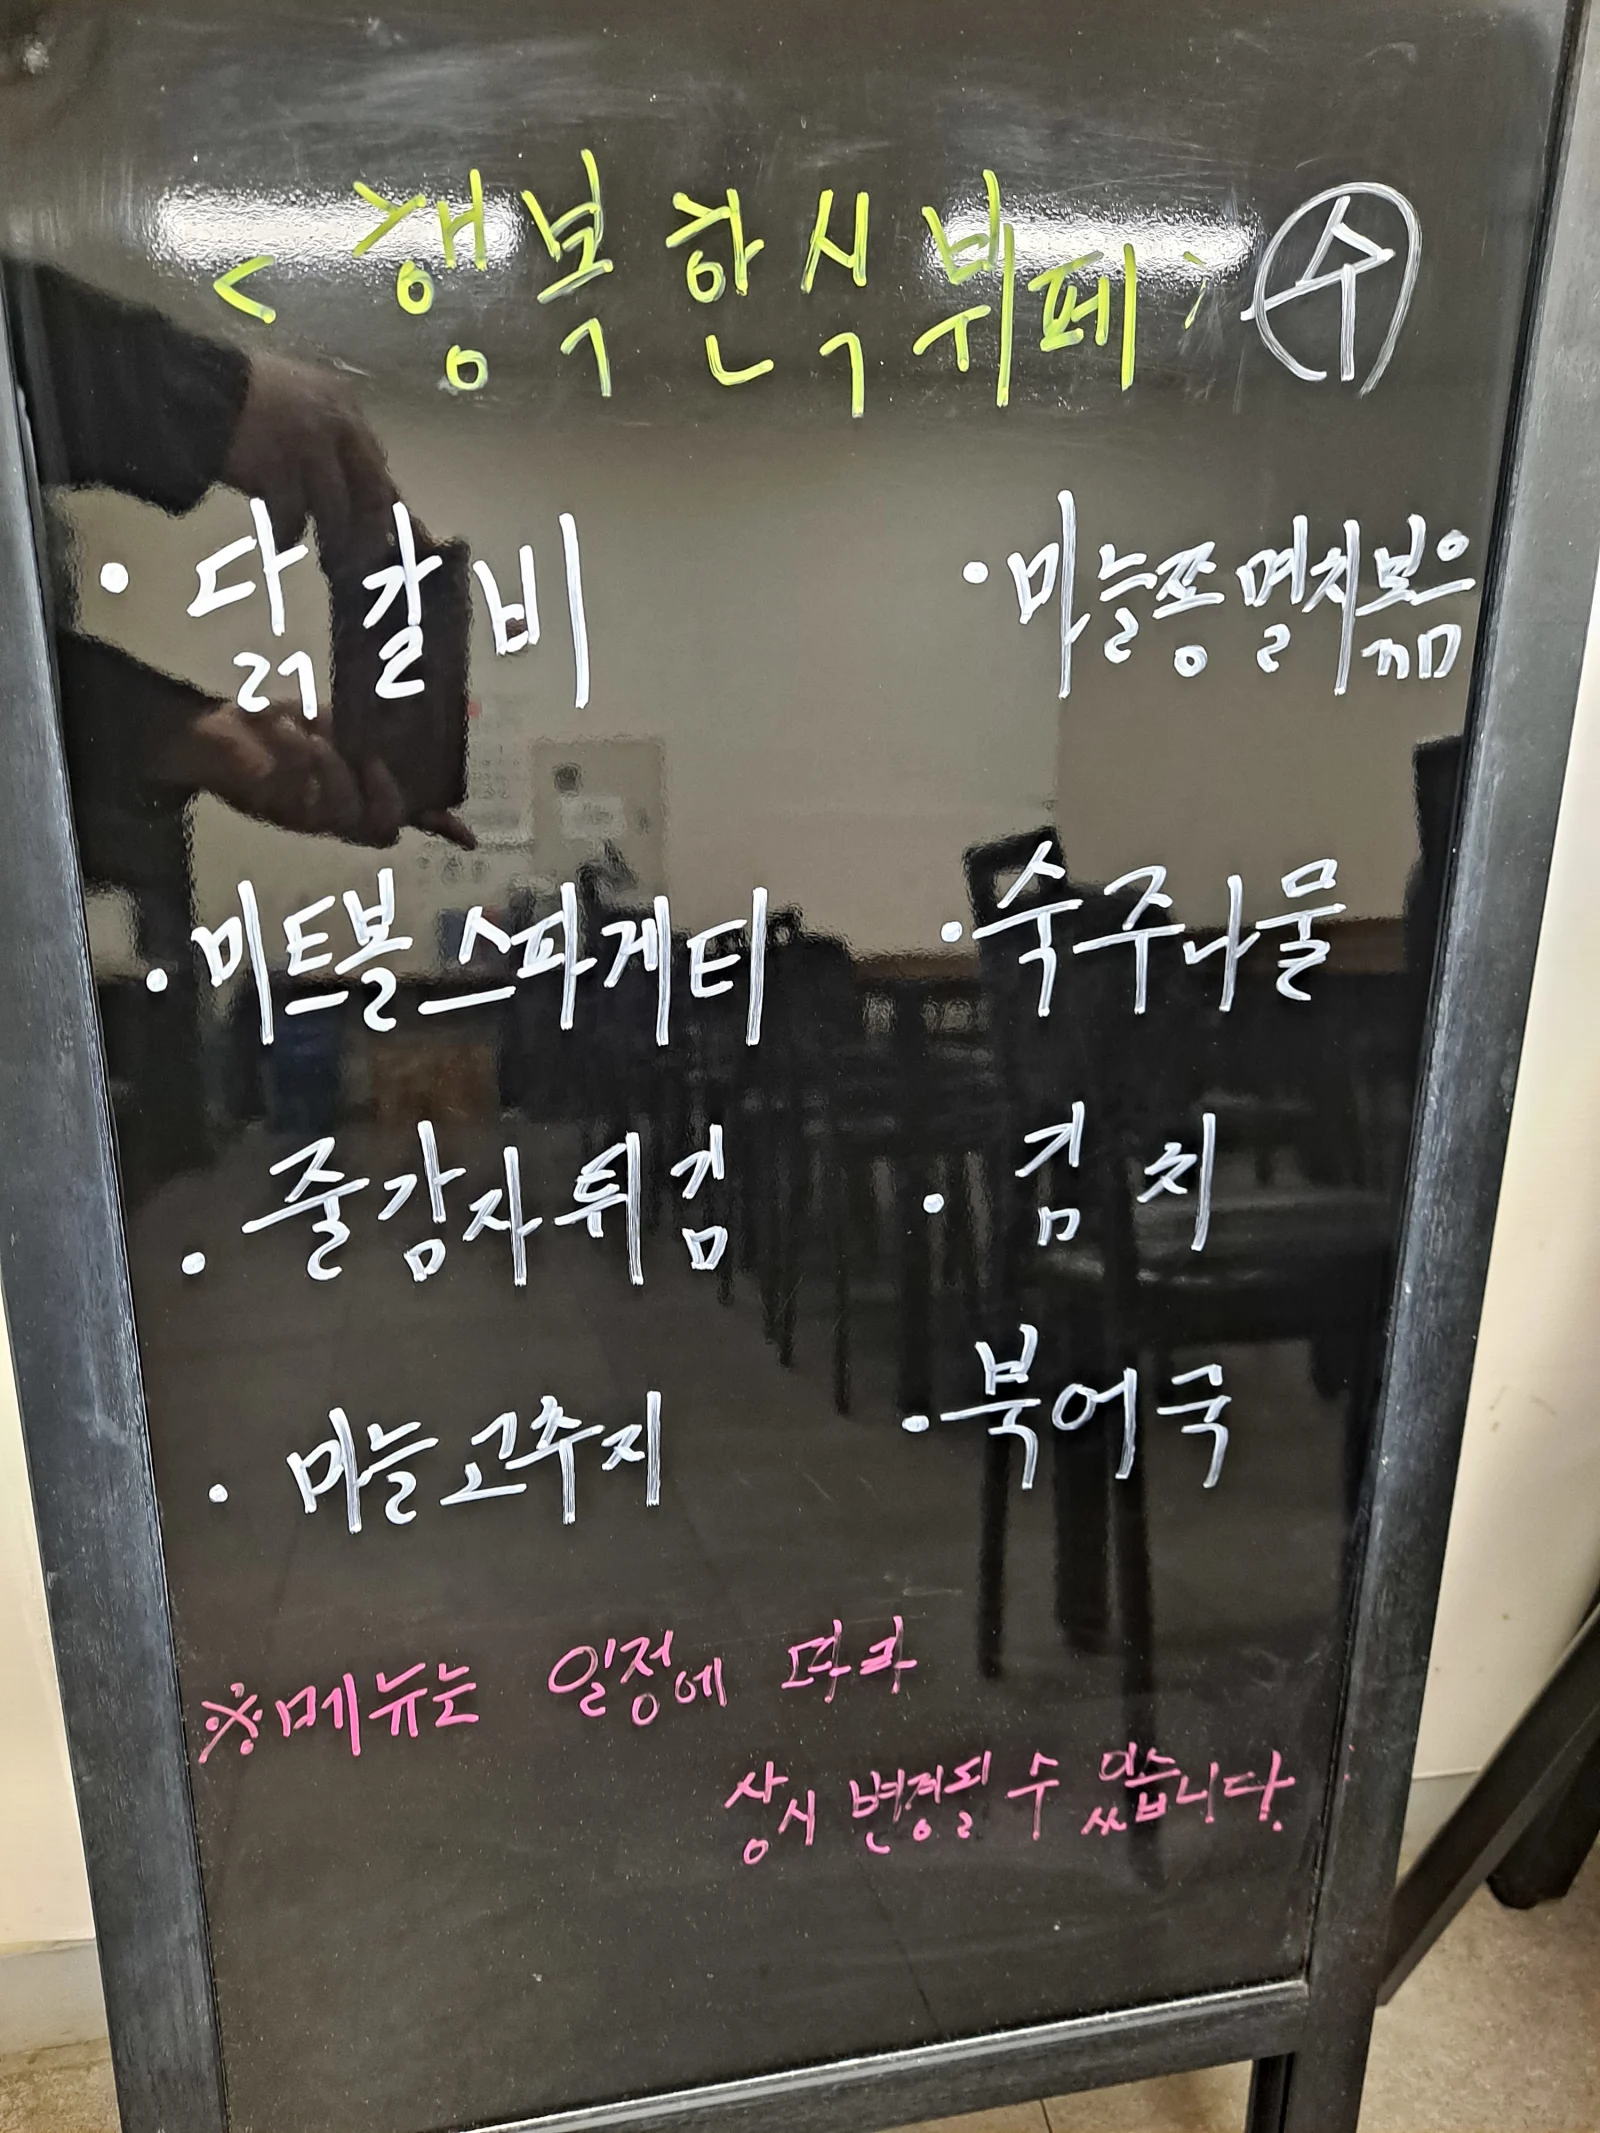 < 행복한식뷔페 > 수
· 닭갈비
· 마늘쫑멸치볶음
· 미트볼스파게티
· 숙주나물
· 줄감자튀김
· 김치
· 마늘고추지
· 북어국
※메뉴는 일정에 따라
상시 변경될 수 있습니다.